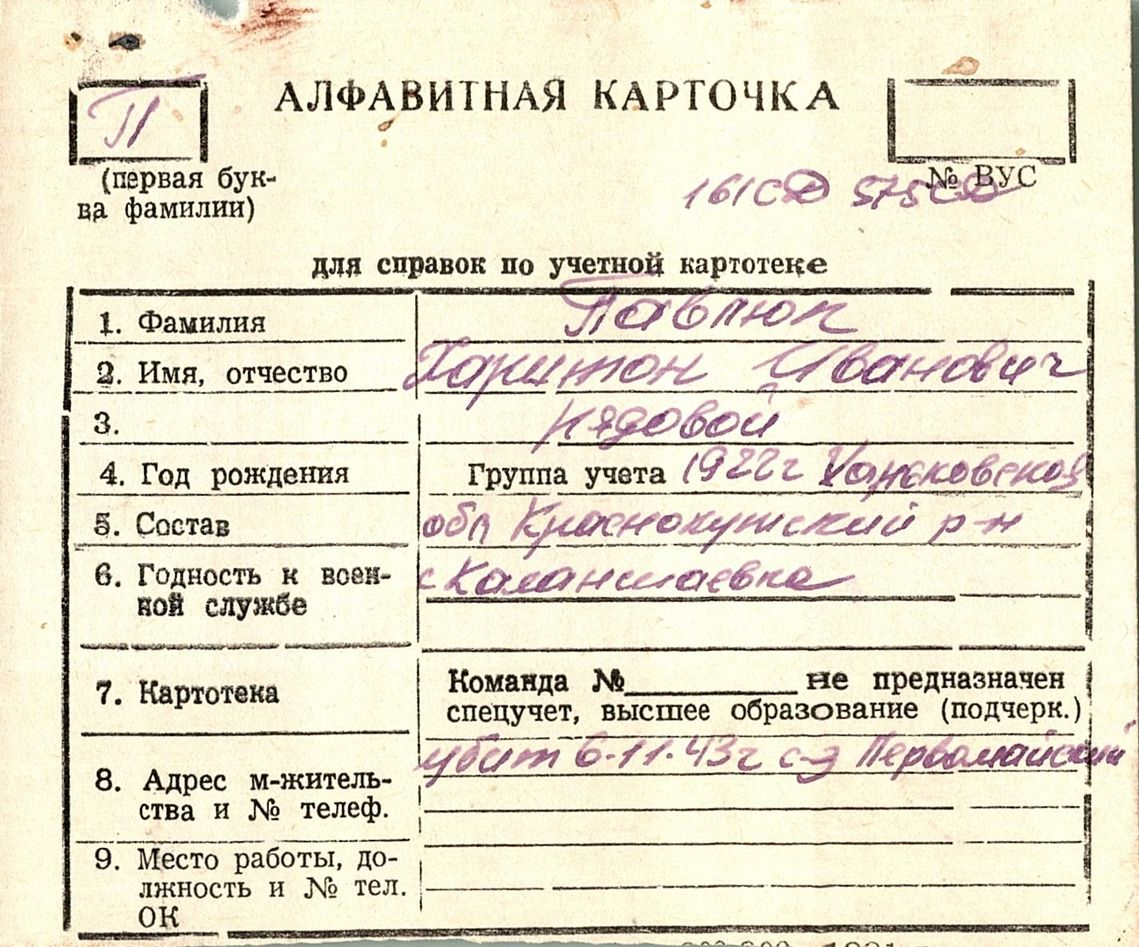 П
АЛФАВИТНАЯ КАРТОЧКА
(первая бук-
ва фамилии)
№ ВУС
161СД 575СД
для справок по учетной картотеке
1. Фамилия Павлюк
2. Имя, отчество Харитон Иванович
3. рядовой
4. Год рождения Группа учета 1922г Харьковской
5. Состав обл Краснокутский р-н
6. Годность к воен- с Каланшаевка
ной службе
7. Картотека Команда № не предназначен
спецучет, высшее образование (подчерк.)
убит 6.11.43г с-з Первомайский
8. Адрес м-житель-
ства и № телеф.
9. Место работы, до-
лжность и № тел.
ОК